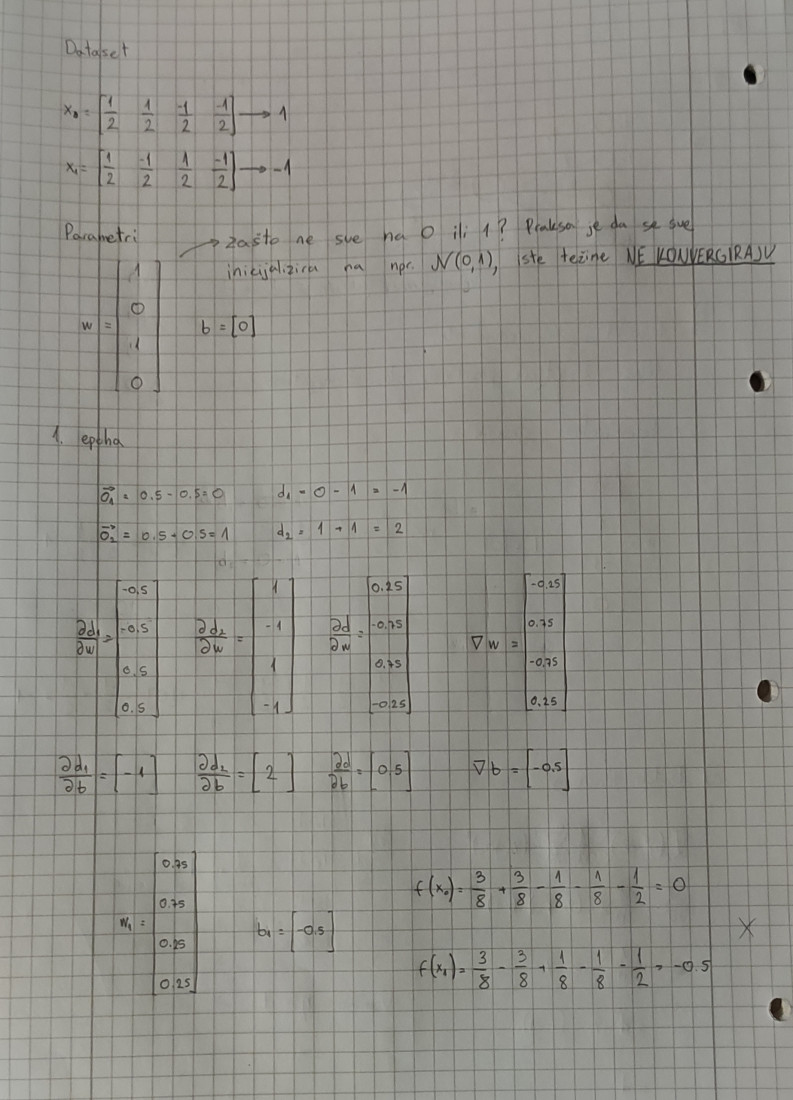 Dataset
x₀ = [1/2 1/2 -1/2 -1/2] → 1
x₁ = [1/2 -1/2 1/2 -1/2] → -1
Parametri → zašto ne sve na 0 ili 1? Praksa je da se sve
inicijalizira na npr. N(0,1), iste težine NE KONVERGIRAJU
w = [1 0 1 0] b = [0]
1. epoha
o₁ = 0.5 - 0.5 = 0 d₁ = 0 - 1 = -1
o₂ = 0.5 + 0.5 = 1 d₂ = 1 + 1 = 2
∂d₁/∂w = [-0,5 -0.5 0.5 0.5] ∂d₂/∂w = [1 -1 1 -1] ∂d/∂w = [0.25 -0.75 0.75 -0.25] ∇w = [-0,25 0.75 -0,75 0.25]
∂d₁/∂b = [-1] ∂d₂/∂b = [2] ∂d/∂b = [0.5] ∇b = [-0.5]
w₁ = [0.75 0.75 0.25 0.25] b₁ = [-0.5]
f(x₀) = 3/8 + 3/8 - 1/8 - 1/8 - 1/2 = 0
X
f(x₁) = 3/8 - 3/8 + 1/8 - 1/8 - 1/2 = -0.5